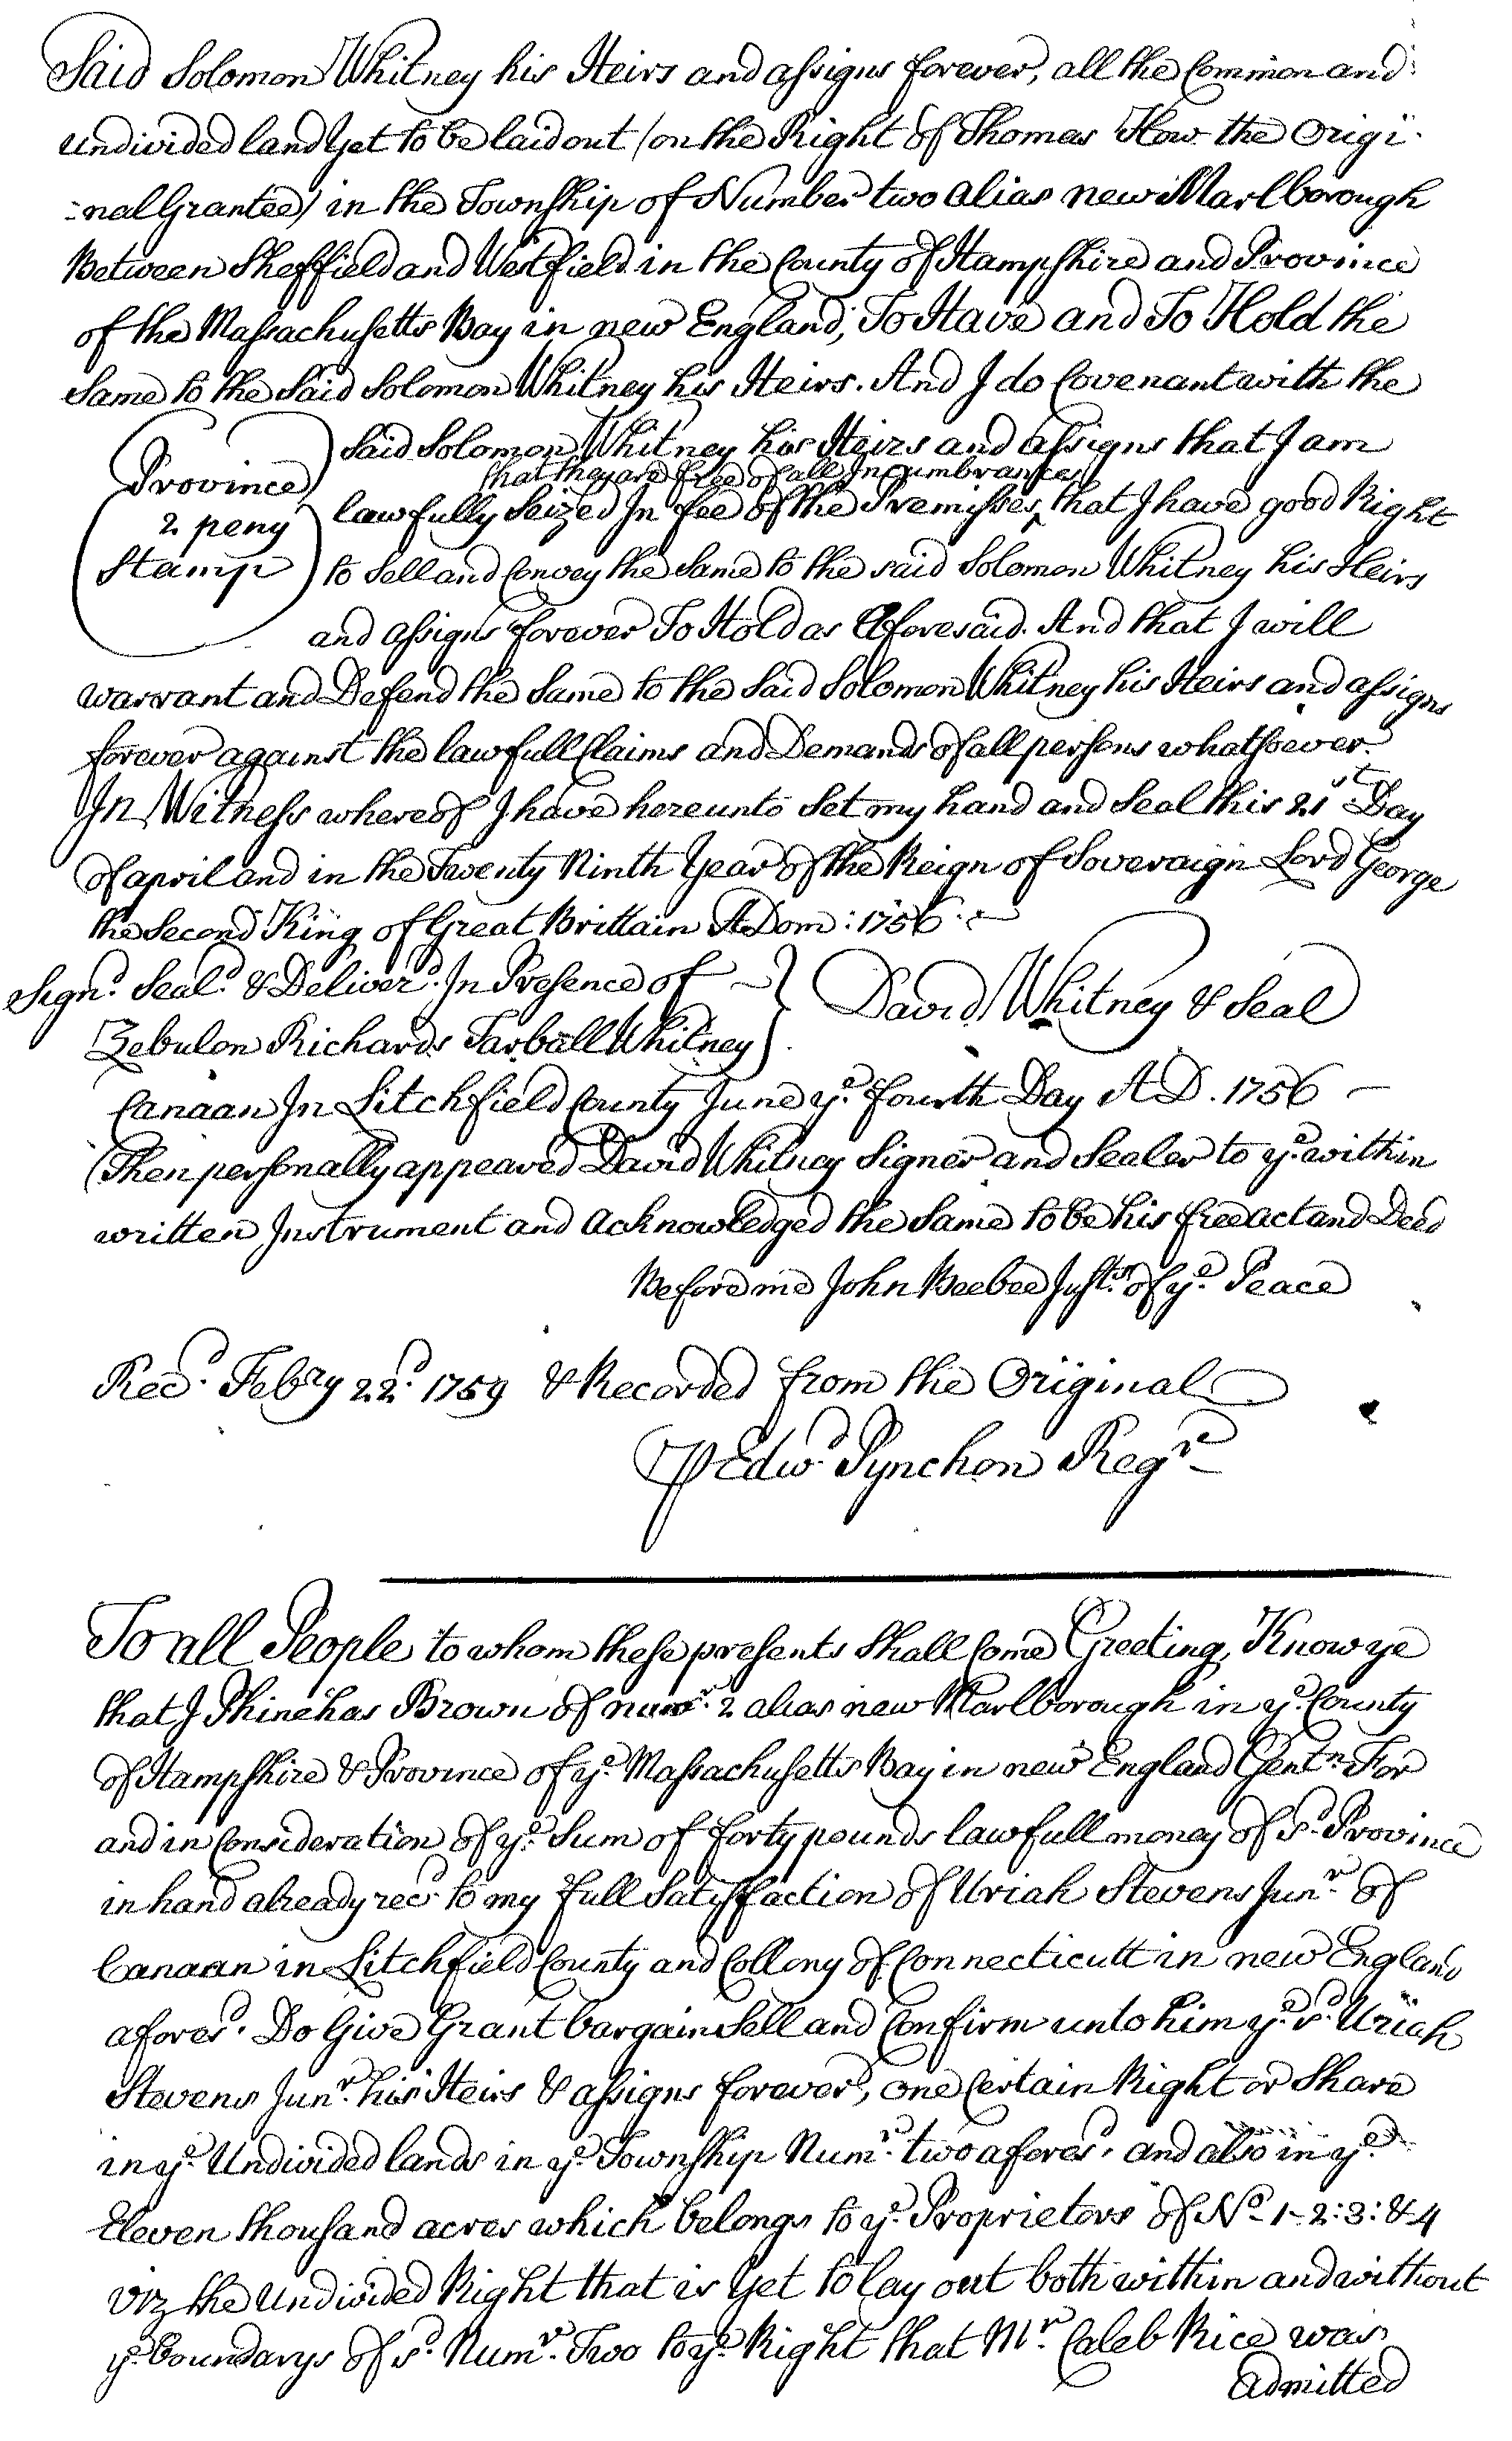 Said Solomon Whitney his Heirs and assigns forever, all the Common and
undivided land yet to be laid out (on the Right of Thomas How the Origi
-nal Grantee) in the Township of Number two alias new Marlborough
Between Sheffield and Westfield in the County of Hampshire and Province
of the Massachusetts Bay in new England, To Have and To Hold the
Same to the Said Solomon Whitney his Heirs. And I do Covenant with the
Said Solomon Whitney his Heirs and assigns that I am
that they are free of all Incumbrances
Province
lawfully Seized In fee of the Premisses, ‸ that I have good Right
2 peny
Stamp
to Sell and Convey the Same to the said Solomon Whitney his Heirs
and assigns forever To Hold as Aforesaid. And that I will
warrant and Defend the Same to the Said Solomon Whitney his Heirs and assigns
forever against the lawfull Claims and Demands of all persons whatsoever.
In Witness whereof I have hereunto Set my hand and Seal this 21st Day
of april and in the Twenty Ninth Year of the Reign of Soveraign Lord George
the Second King of Great Brittain A Dom: 1756.
Signd. Seald. & Deliverd. In Presence of
David Whitney & Seal
Zebulon Richards Tarball Whitney
Canaan In Litchfield County June ye. fourth Day A D. 1756 —
Then personally appeared David Whitney Signer and Sealer to ye. within
written Instrument and Acknowledged the Same to be his free act and Deed
Before me John Beebee Justs. of ye. Peace
Recd. Febry 22d. 1759 & Recorded from the Original
℘ Edwd. Pynchon Regr.
To all People to whom these presents Shall Come Greeting, Know ye
that I Phinehas Brown of numr. 2 alias new Marlborough in ye. County
of Hampshire & Province of ye. Massachusetts Bay in new England Gentn. For
and in Consideration of ye. Sum of forty pounds lawfull money of sd. Province
in hand already recd. to my full Satisfaction of Uriah Stevens Junr. of
Canaan in Litchfield County and Collony of Connecticutt in new England
aforesd. Do Give Grant bargain Sell and Confirm unto him ye. sd. Uriah
Stevens Junr. his Heirs & assigns forever, one Certain Right or Share
in ye. Undivided lands in ye. Township Numr. two aforesd. and also in ye.
Eleven thousand acres which belongs to ye. Proprietors of No. 1-2:3:&4
viz the Undivided Right that is yet to lay out both within and without
ye. boundarys of sd. Numr. Two to ye. Right that Mr. Caleb Rice was
admitted